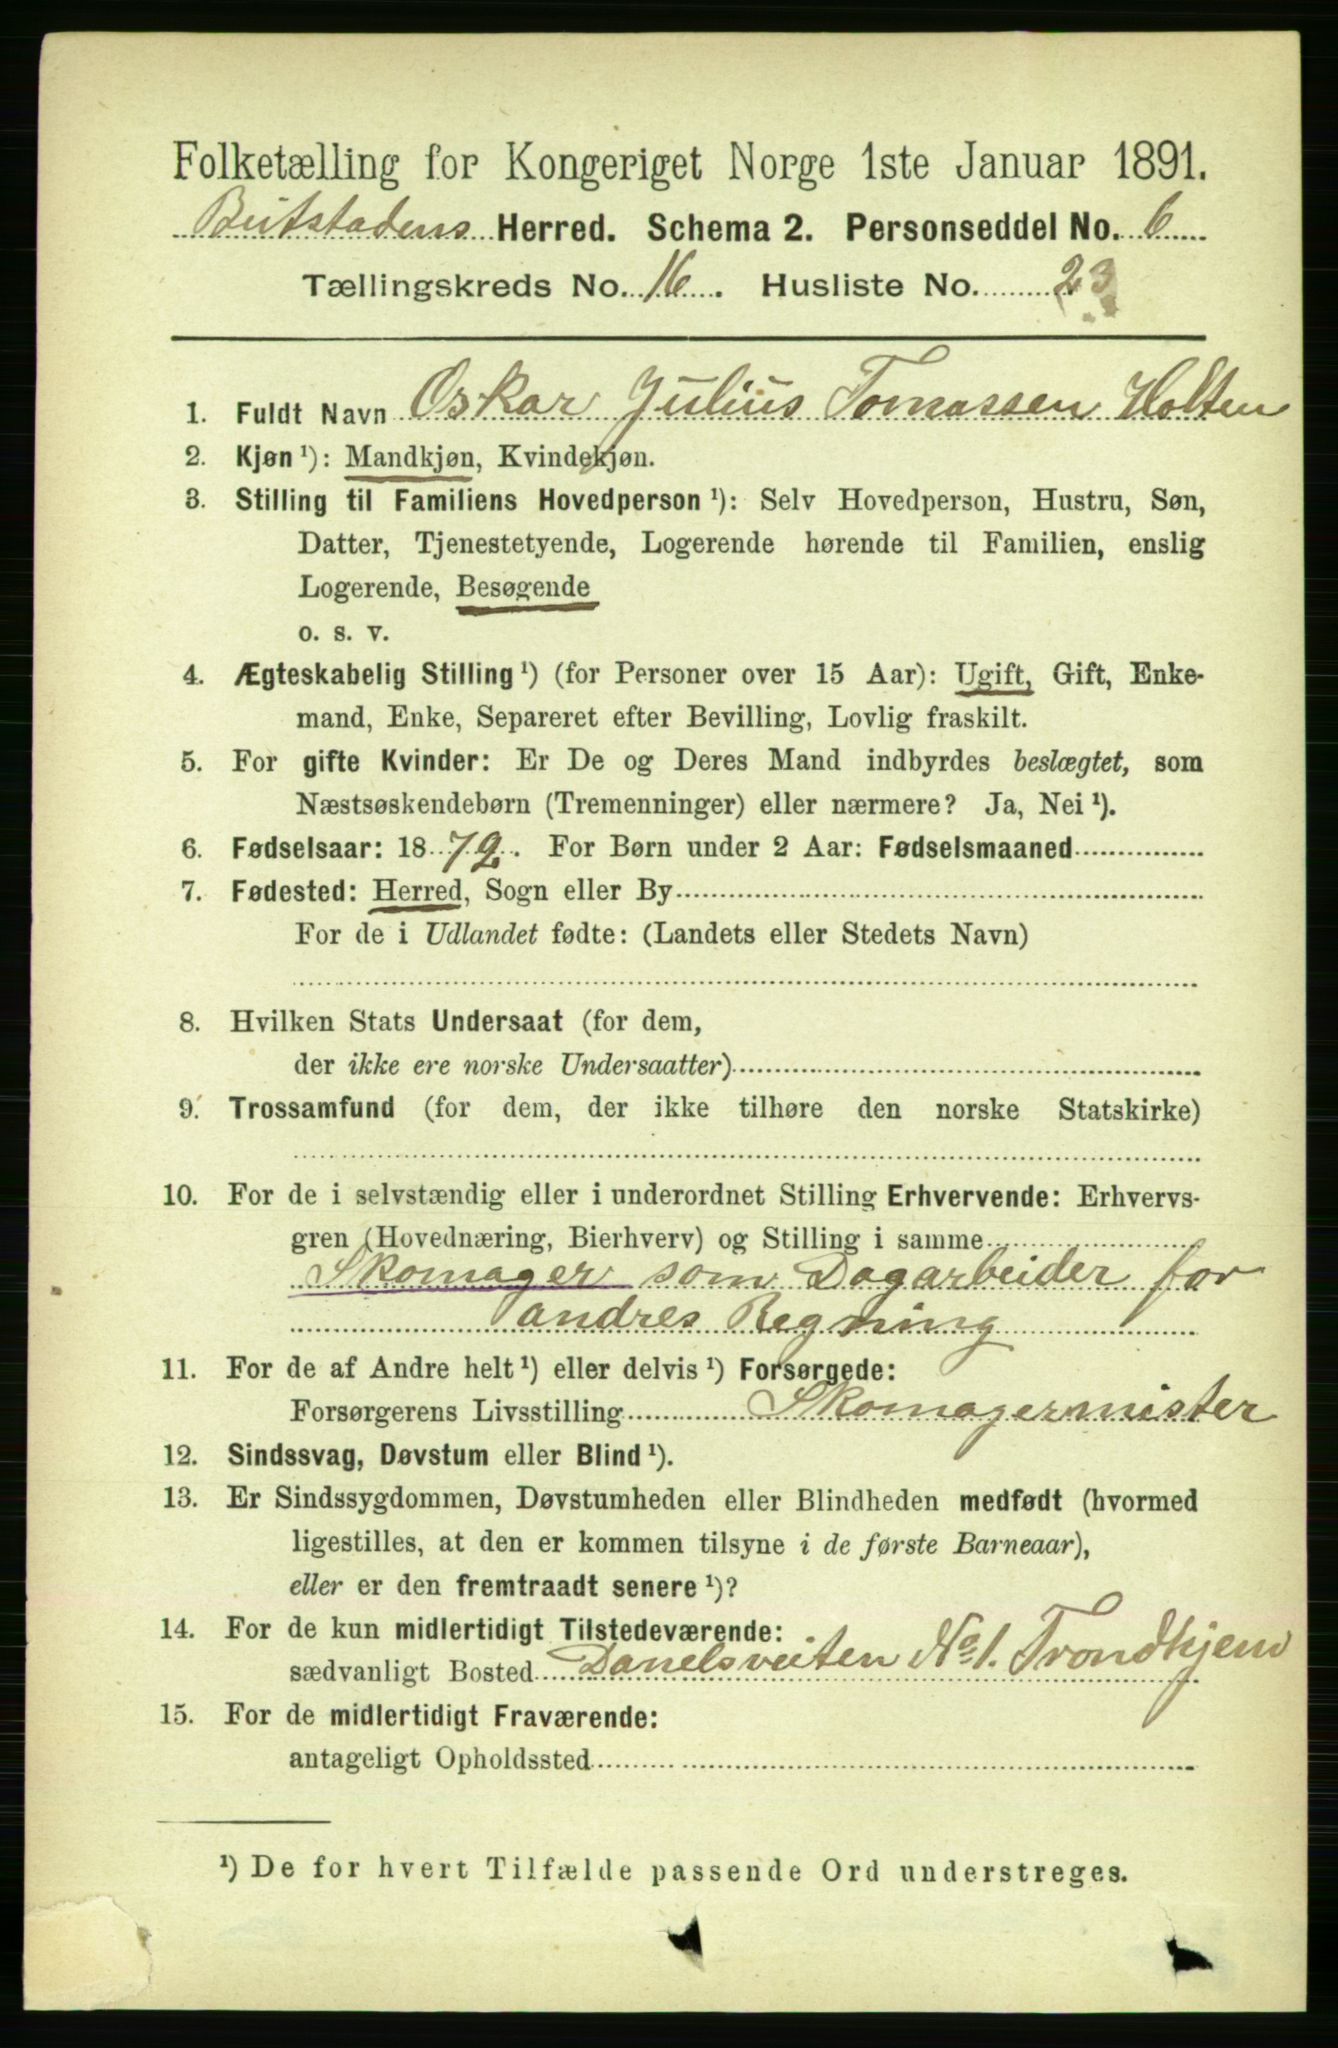 Folketælling for Kongeriget Norge 1ste Januar 1891.
Beitstadens Herred. Schema 2. Personseddel No. 6
Tællingskreds No. 16. Husliste No. 23
1. Fuldt Navn Oskar Julius Tomassen Holten
2. Kjøn ¹): Mandkjøn, Kvindekjøn.
3. Stilling til Familiens Hovedperson ¹): Selv Hovedperson, Hustru, Søn,
Datter, Tjenestetyende, Logerende hørende til Familien, enslig
Logerende, Besøgende
o. s. v.
4. Ægteskabelig Stilling ¹) (for Personer over 15 Aar): Ugift, Gift, Enke-
mand, Enke, Separeret efter Bevilling, Lovlig fraskilt.
5. For gifte Kvinder: Er De og Deres Mand indbyrdes beslægtet, som
Næstsøskendebørn (Tremenninger) eller nærmere? Ja, Nei ¹).
6. Fødselsaar: 1872. For Børn under 2 Aar: Fødselsmaaned
7. Fødested: Herred, Sogn eller By
For de i Udlandet fødte: (Landets eller Stedets Navn)
8. Hvilken Stats Undersaat (for dem,
der ikke ere norske Undersaatter)
9. Trossamfund (for dem, der ikke tilhøre den norske Statskirke)
10. For de i selvstændig eller i underordnet Stilling Erhvervende: Erhvervs-
gren (Hovednæring, Bierhverv) og Stilling i samme
Skomager som Dagarbeider for
andres Regning
11. For de af Andre helt ¹) eller delvis ¹) Forsørgede:
Forsørgerens Livsstilling Skomagermister
12. Sindssvag, Døvstum eller Blind ¹).
13. Er Sindssygdommen, Døvstumheden eller Blindheden medfødt (hvormed
ligestilles, at den er kommen tilsyne i de første Barneaar),
eller er den fremtraadt senere ¹)?
14. For de kun midlertidigt Tilstedeværende:
sædvanligt Bosted Danelsveiten No 1. Trondhjem
15. For de midlertidigt Fraværende:
antageligt Opholdssted
¹) De for hvert Tilfælde passende Ord understreges.